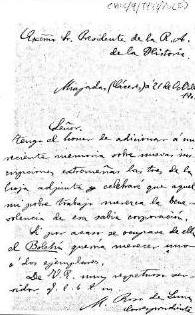 Excmo Sr. Presidente de la R. A.
de la Historia.
Miajada, (Cáceres) á 21 de
Señor:
Tengo el honor de adicionar á mi
reciente memoria sobre nuevas ins-
cripciones extremeñas las tres de la
hoja adjunta y celebraré que aquel
mi pobre trabajo merezca la bene-
volencia de esa sabia corporación.
Si por acaso se ocupase de ella
el Boletín querría merecer uno
ó dos ejemplares.
De V. E. muy respetuoso ser-
vidor q. b. s. m.
M. Roso de Luna
Correspondiente